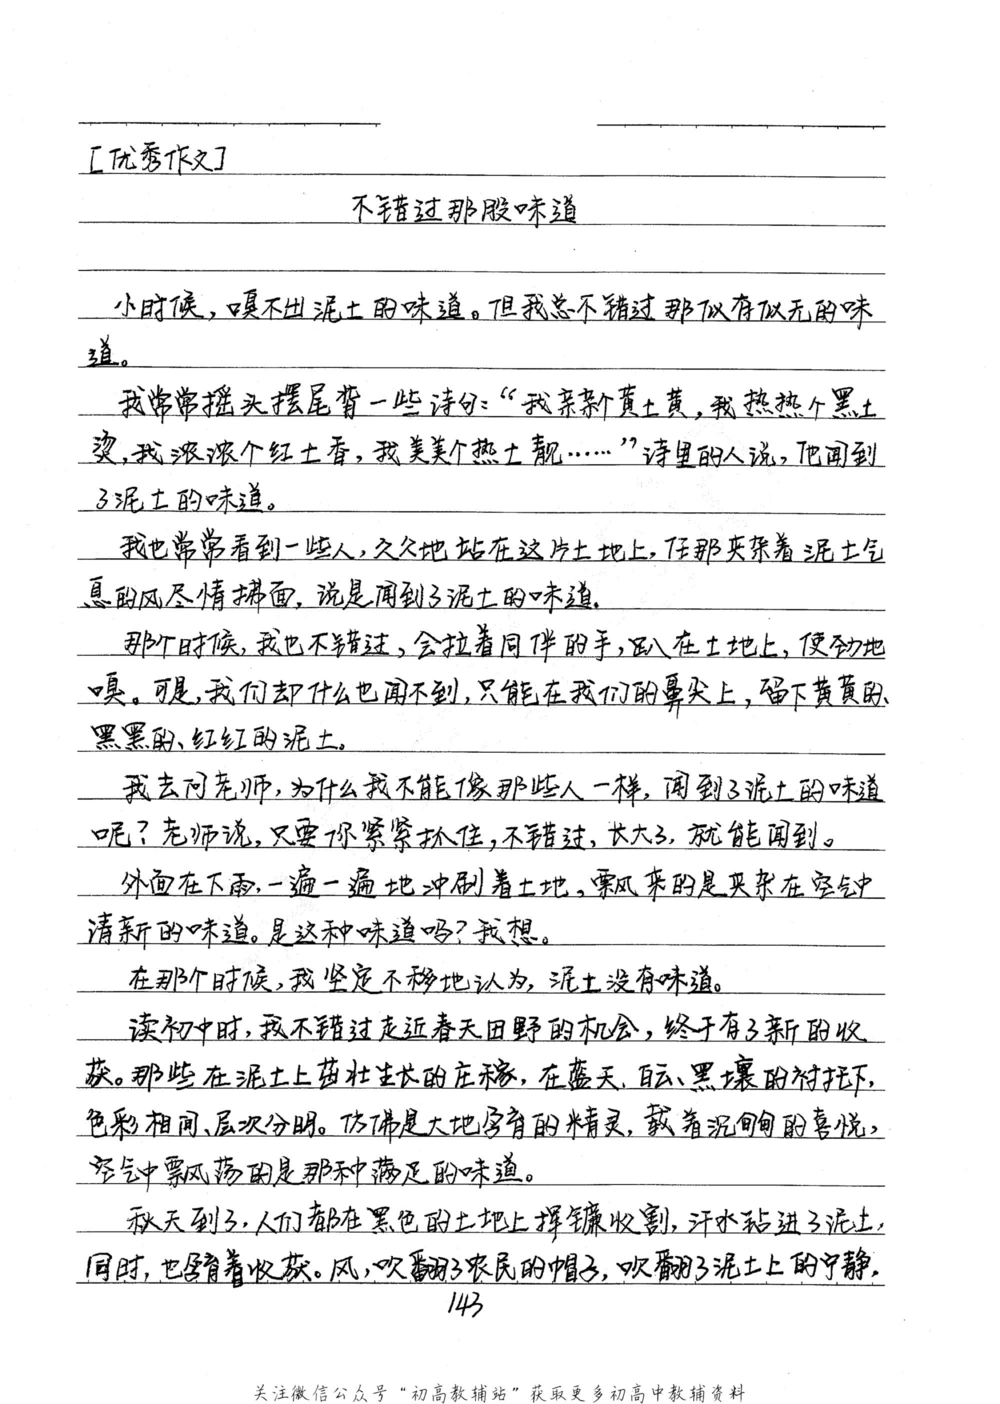 [优秀作文]
不错过那股味道
小时候,嗅不出泥土的味道。但我总不错过那似有似无的味
道。
我常常摇头摆尾背一些诗句:“我亲亲个黄土黄,我热热个黑土
烫,我浓浓个红土香,我美美个热土靓……”诗里的人说,他闻到
了泥土的味道。
我也常常看到一些人,久久地站在这片土地上,任那夹杂着泥土气
息的风尽情拂面,说是闻到了泥土的味道.
那个时候,我也不错过,会拉着同伴的手,趴在土地上,使劲地
嗅。可是,我们却什么也闻不到,只能在我们的鼻尖上,留下黄黄的、
黑黑的、红红的泥土。
我去问老师,为什么我不能像那些人一样,闻到了泥土的味道
呢?老师说,只要你紧紧抓住,不错过,长大了,就能闻到。
外面在下雨,一遍一遍地冲刷着土地,飘来的是夹杂在空气中
清新的味道。是这种味道吗?我想。
在那个时候,我坚定不移地认为,泥土没有味道。
读初中时,我不错过走近春天田野的机会,终于有了新的收
获。那些在泥土上茁壮生长的庄稼,在蓝天、白云、黑壤的衬托下,
色彩相间、层次分明。仿佛是大地孕育的精灵,载着沉甸甸的喜悦,
空气中飘荡的是那种满足的味道。
秋天到了,人们都在黑色的土地上挥镰收割,汗水钻进了泥土,
同时,也孕育着收获。风,吹翻了农民的帽子,吹翻了泥土上的宁静,
143
关注微信公众号“初高教辅站”获取更多初高中教辅资料